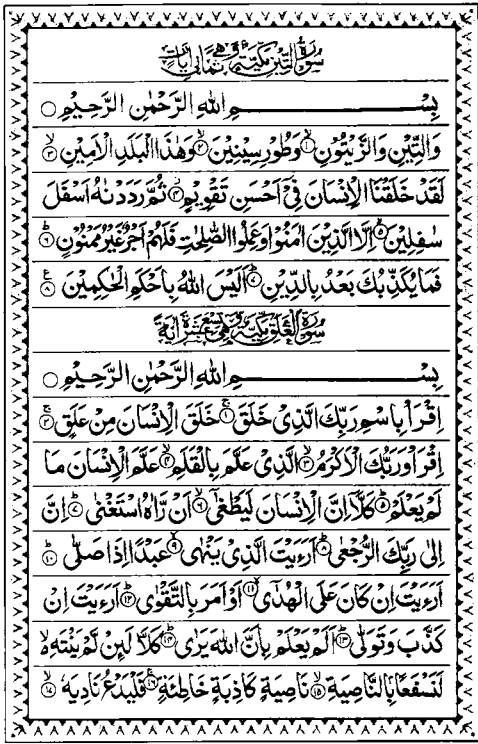 سُوْرَةُ التِّيْنِ مَكِّيَّةٌ وَّهِيَ ثَمَانِيْ اٰيَاتٍ
بِسْمِ اللهِ الرَّحْمٰنِ الرَّحِيْمِ ○
وَالتِّيْنِ وَالزَّيْتُوْنِ ۙ﴿۱﴾ وَطُوْرِ سِيْنِيْنَ ۙ﴿۲﴾ وَهٰذَا الْبَلَدِ الْاَمِيْنِ ۙ﴿۳﴾
لَقَدْ خَلَقْنَا الْاِنْسَانَ فِيْۤ اَحْسَنِ تَقْوِيْمٍ ۫﴿۴﴾ ثُمَّ رَدَدْنٰهُ اَسْفَلَ
سٰفِلِيْنَ ۙ﴿۵﴾ اِلَّا الَّذِيْنَ اٰمَنُوْا وَعَمِلُوا الصّٰلِحٰتِ فَلَهُمْ اَجْرٌ غَيْرُ مَمْنُوْنٍ ؕ﴿۶﴾
فَمَا يُكَذِّبُكَ بَعْدُ بِالدِّيْنِ ؕ﴿۷﴾ اَلَيْسَ اللهُ بِاَحْكَمِ الْحٰكِمِيْنَ ﴿۸﴾
سُوْرَةُ الْعَلَقِ مَكِّيَّةٌ وَّهِيَ تِسْعَ عَشْرَةَ اٰيَةً
بِسْمِ اللهِ الرَّحْمٰنِ الرَّحِيْمِ ○
اِقْرَاْ بِاسْمِ رَبِّكَ الَّذِيْ خَلَقَ ۚ﴿۱﴾ خَلَقَ الْاِنْسَانَ مِنْ عَلَقٍ ۚ﴿۲﴾
اِقْرَاْ وَرَبُّكَ الْاَكْرَمُ ۙ﴿۳﴾ الَّذِيْ عَلَّمَ بِالْقَلَمِ ۙ﴿۴﴾ عَلَّمَ الْاِنْسَانَ مَا
لَمْ يَعْلَمْ ؕ﴿۵﴾ كَلَّاۤ اِنَّ الْاِنْسَانَ لَيَطْغٰۤى ۙ﴿۶﴾ اَنْ رَّاٰهُ اسْتَغْنٰى ؕ﴿۷﴾ اِنَّ
اِلٰى رَبِّكَ الرُّجْعٰى ؕ﴿۸﴾ اَرَءَيْتَ الَّذِيْ يَنْهٰى ۙ﴿۹﴾ عَبْدًا اِذَا صَلّٰى ؕ﴿۱۰﴾
اَرَءَيْتَ اِنْ كَانَ عَلَى الْهُدٰۤى ۙ﴿۱۱﴾ اَوْ اَمَرَ بِالتَّقْوٰى ؕ﴿۱۲﴾ اَرَءَيْتَ اِنْ
كَذَّبَ وَتَوَلّٰى ؕ﴿۱۳﴾ اَلَمْ يَعْلَمْ بِاَنَّ اللهَ يَرٰى ؕ﴿۱۴﴾ كَلَّا لَئِنْ لَّمْ يَنْتَهِ ۙ
لَنَسْفَعًۢا بِالنَّاصِيَةِ ۙ﴿۱۵﴾ نَاصِيَةٍ كَاذِبَةٍ خَاطِئَةٍ ۚ﴿۱۶﴾ فَلْيَدْعُ نَادِيَهٗ ۙ﴿۱۷﴾